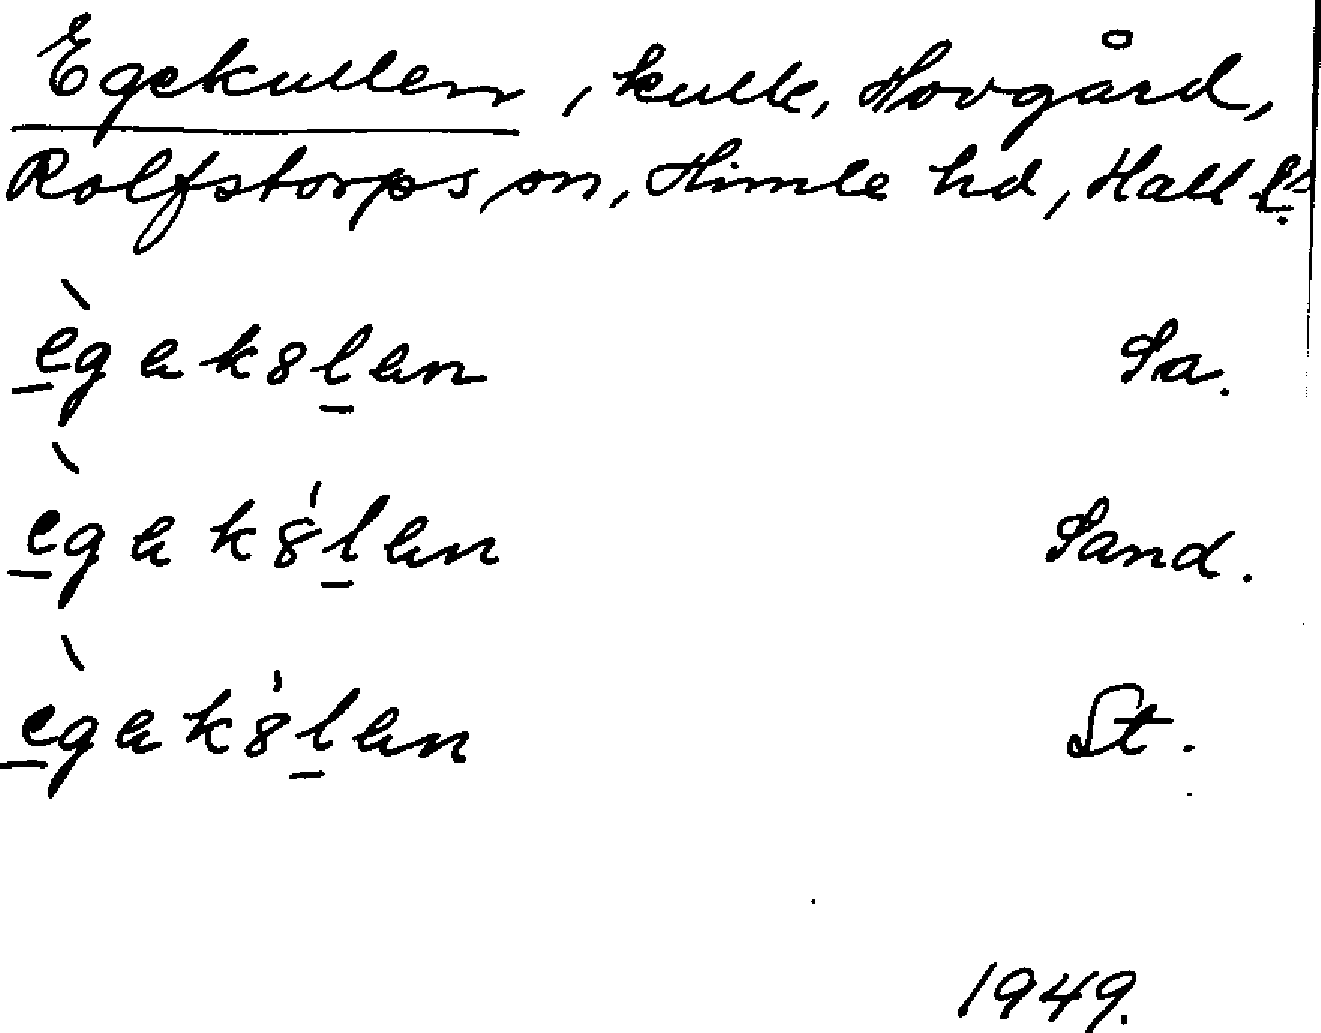 Egekullen, kulle, Hovgård,
Rolfstorps sn, Himle hd, Hall. l.
ègekȣlen Sa.
ègekȣ́len Sand.
ègekȣ́len St.
1949.